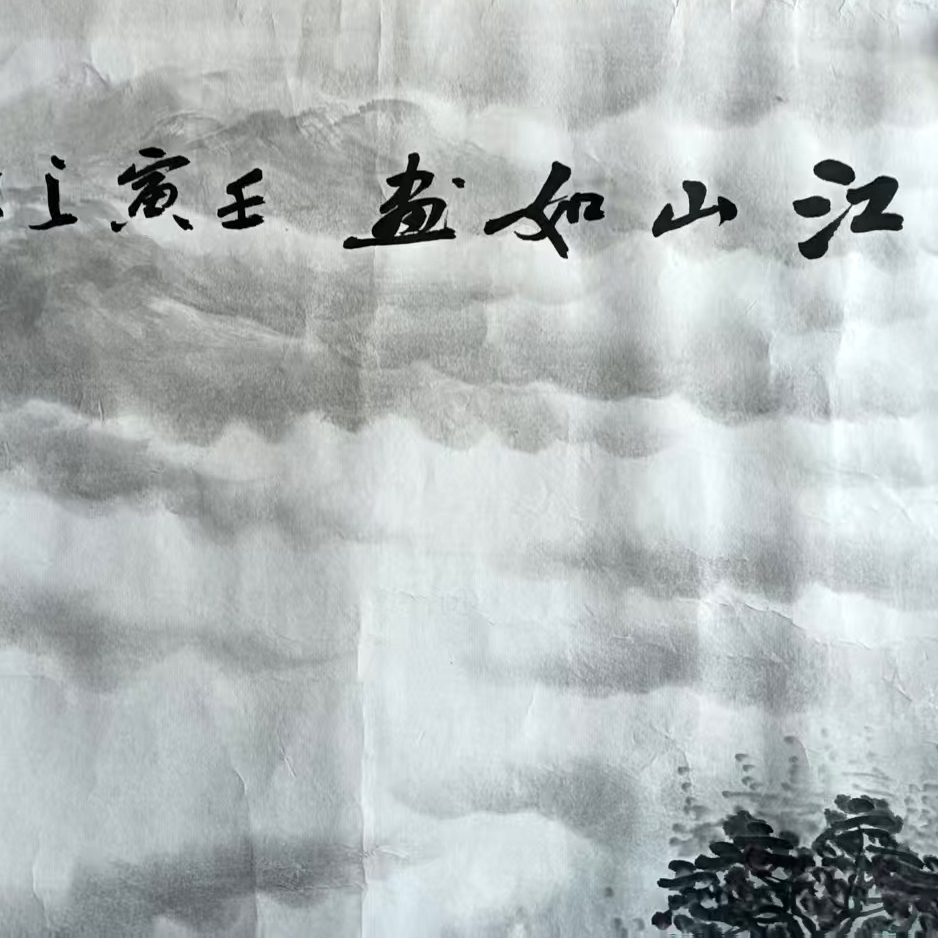 江山如画 壬寅上